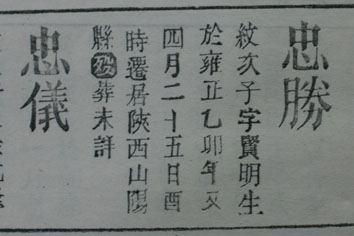 忠勝
紋次子字賢明生
於雍正乙卯年又
四月二十五日酉
時遷居陝西山陽
縣歿葬未詳
忠儀